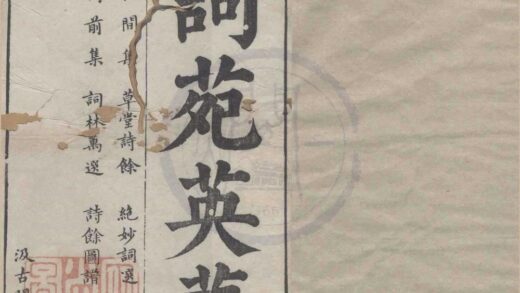 詞苑英華
間集 草堂詩餘 絕妙詞選
前集 詞林萬選 詩餘圖譜
汲古閣